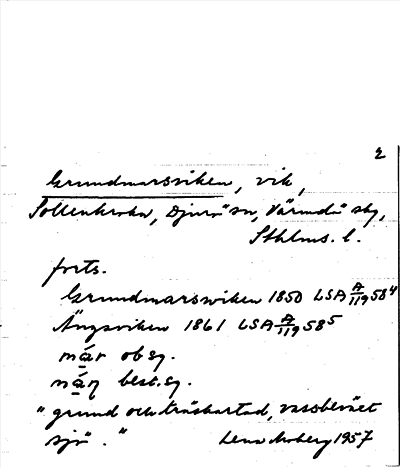 2
Grundmarsviken, vik,
Sollenkroka, Djurö sn, Värmdö skg,
Sthlms. l.
forts.
Grundmarswiken 1850 LSA A/119 58⁴
Ängsviken 1861 LSA A/119 58⁵
már ob sg.
best. sg.
"grund och träskartad, vassbevuxet
sjö."
Lena Moberg 1957